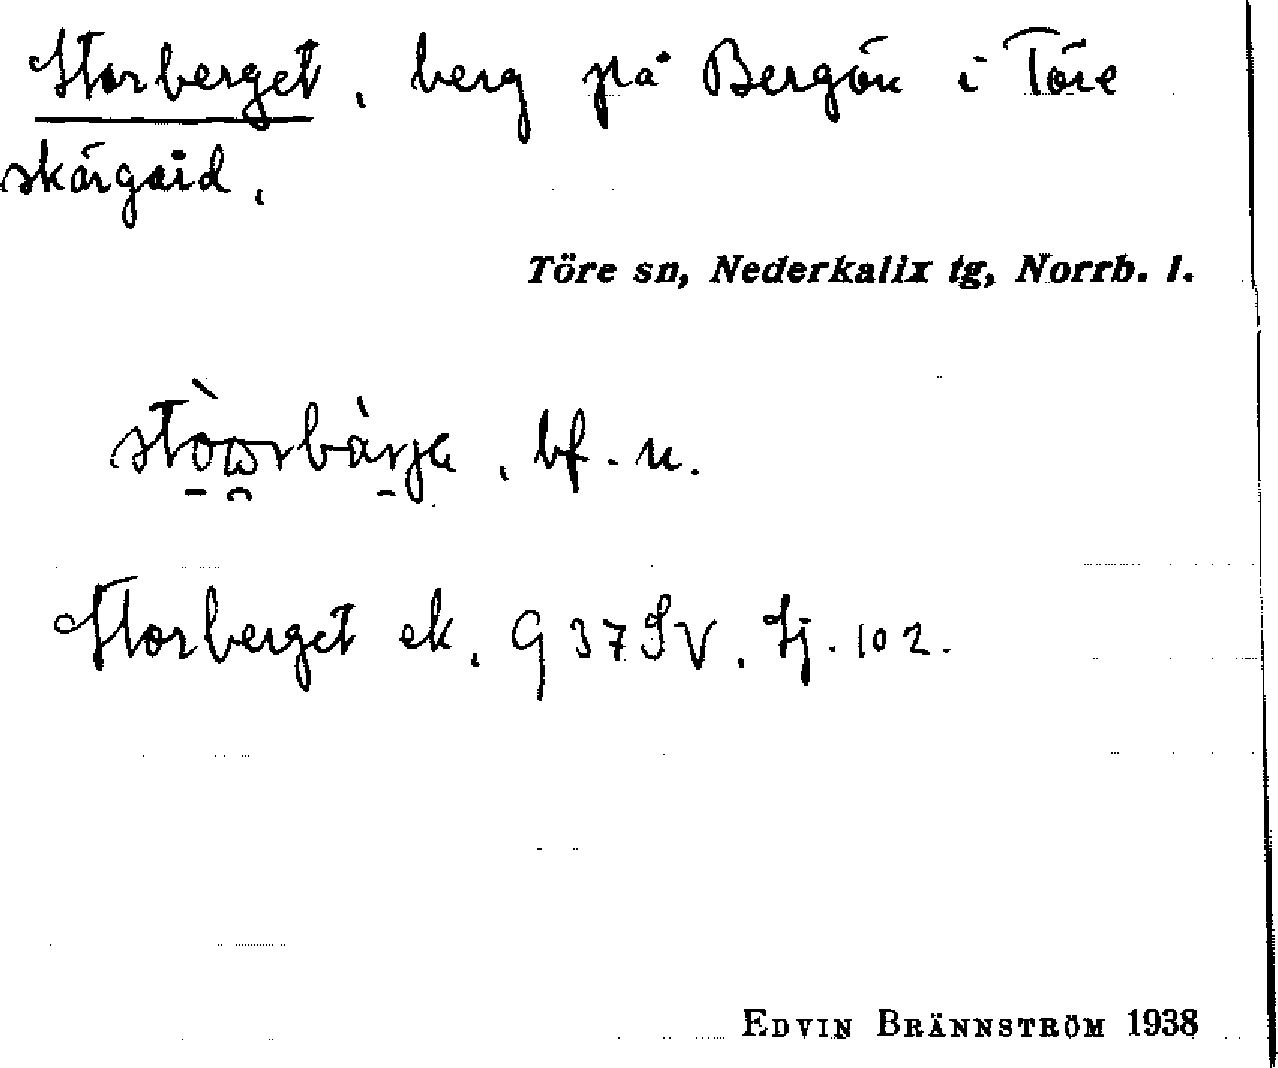 Storberget, berg på Bergön i Töre
skärgård,
Töre sn, Nederkalix tg, Norrb. l.
bf. n.
Storberget ek, G 37 SV, Tj. 102.
EDVIN BRÄNNSTRÖM 1938